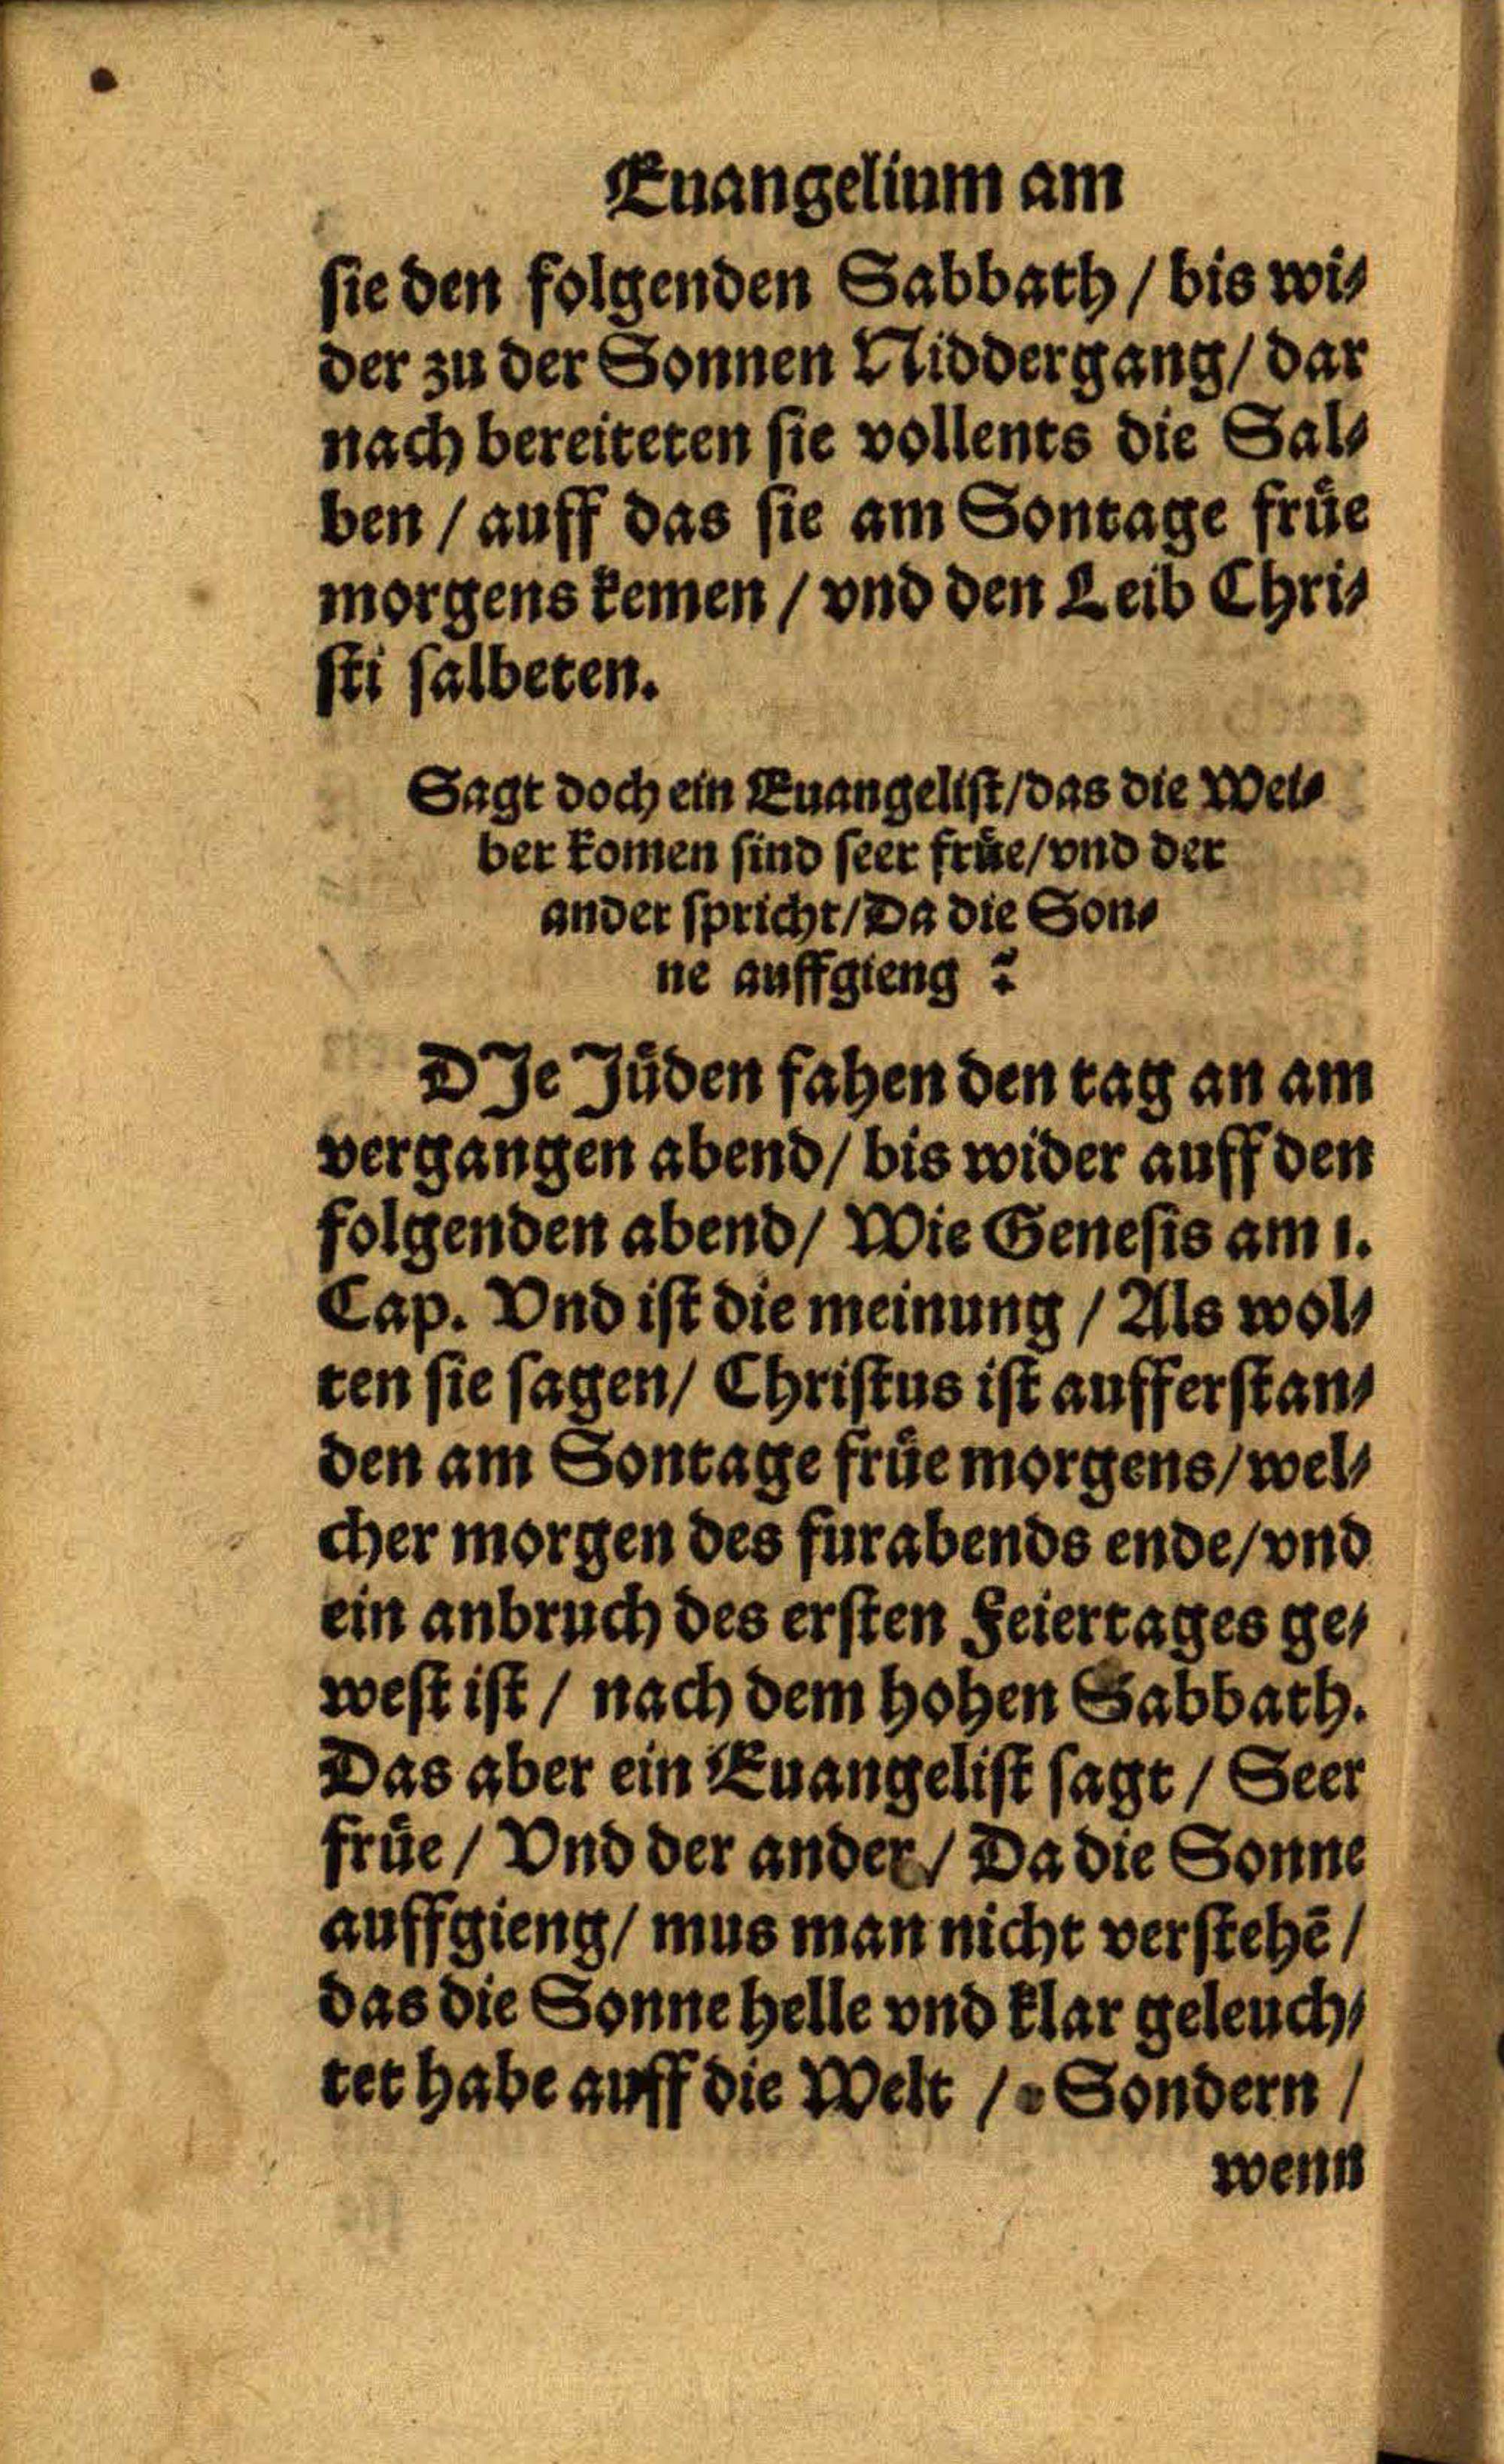 Euangelium am
sie den folgenden Sabbath / bis wi⸗
der zu der Sonnen Niddergang / dar
nach bereiteten sie vollents die Sal⸗
ben / auff das sie am Sontage früe
morgens kemen / vnd den Leib Chri⸗
sti salbeten.
Sagt doch ein Euangelist / das die Wei⸗
ber komen sind seer früe / vnd der
ander spricht / Da die Son⸗
ne auffgieng ?
DJe Jüden fahen den tag an am
vergangen abend / bis wider auff den
folgenden abend / Wie Genesis am 1.
Cap. Vnd ist die meinung / Als wol⸗
ten sie sagen / Christus ist aufferstan⸗
den am Sontage früe morgens / wel⸗
cher morgen des furabends ende / vnd
ein anbruch des ersten Feiertages ge⸗
west ist / nach dem hohen Sabbath.
Das aber ein Euangelist sagt / Seer
früe / Vnd der ander / Da die Sonne
auffgieng / mus man nicht verstehē /
das die Sonne helle vnd klar geleuch⸗
tet habe auff die Welt / Sondern /
wenn